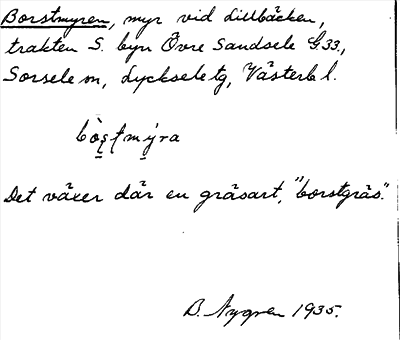 Borstmyren, myr vid Lillbäcken,
trakten S. byn Övre Sandsele G33.,
Sorsele sn, Lycksele tg, Västerb l.
bòṣtmýra
Det växer där en gräsart, "borstgräs".
B. Nygren 1935.